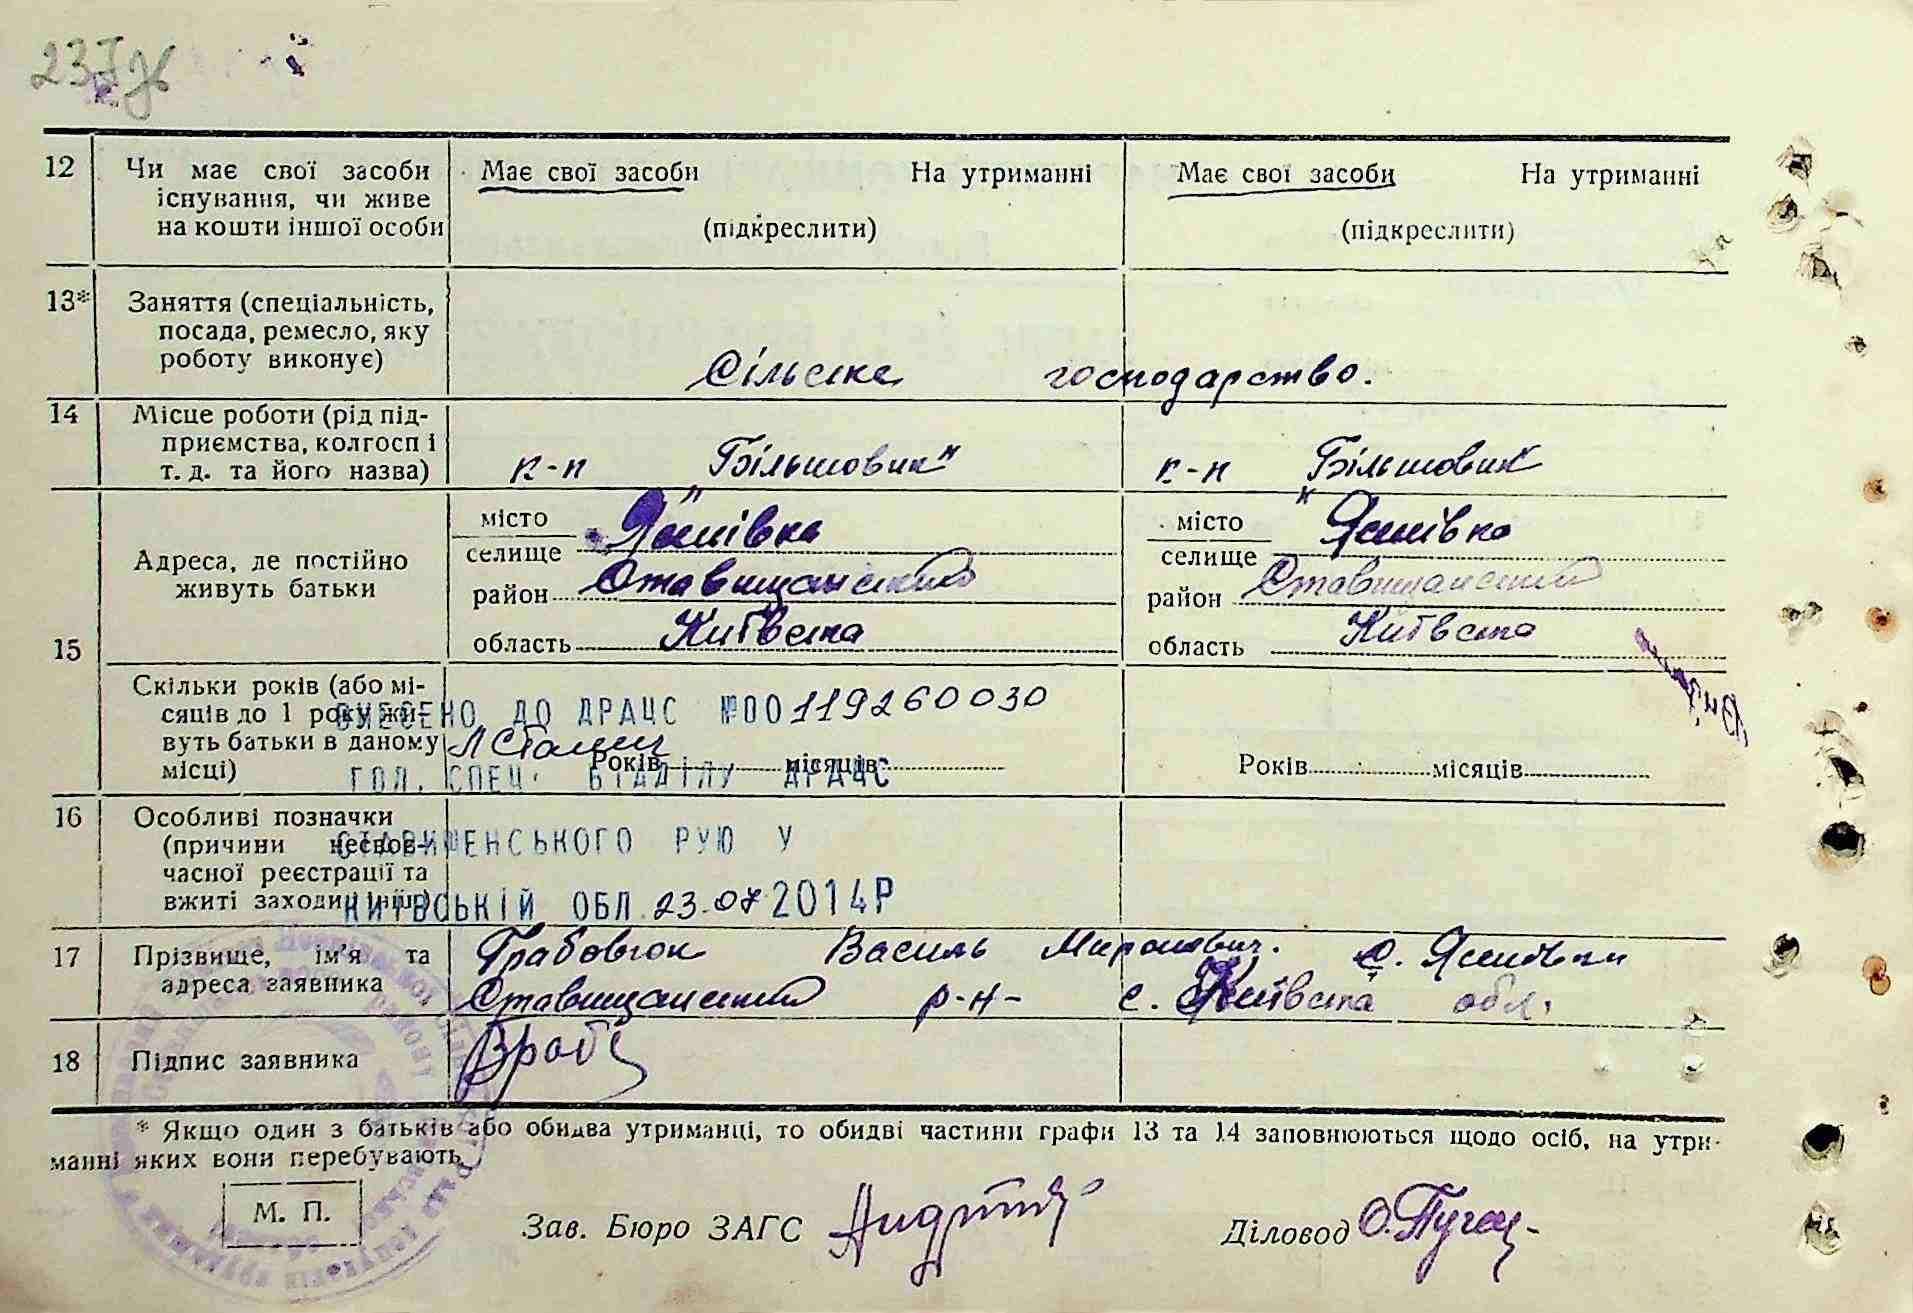 237
12 Чи має свої засоби існування, чи живе на кошти іншої особи
Має свої засоби На утриманні
(підкреслити)
Має свої засоби На утриманні
(підкреслити)
13* Заняття (спеціальність, посада, ремесло, яку роботу виконує)
Сільське господарство.
14 Місце роботи (рід підприємства, колгосп і т. д. та його назва)
к-п "Більшовик"
к-п "Більшовик
15 Адреса, де постійно живуть батьки
місто
селище Яснівка
район Ставищанський
область Київська
місто
селище Яснівка
район Ставищанський
область Київська
Скільки років (або місяців до 1 року живуть батьки в даному місці)
Років місяців
Років місяців
ВНЕСЕНО ДО ДРАЦС №00119260030
ГОЛ. СПЕЦ. ВІДДІЛУ ДРАЦС
СТАВИЩЕНСЬКОГО РУЮ У
КИЇВСЬКІЙ ОБЛ 23.07 2014Р
16 Особливі позначки (причини несвоєчасної реєстрації та вжиті заходи і інш.)
17 Прізвище, ім'я та адреса заявника
Василь Миронович. с. Яснівки
Ставищанський р-н- Київська обл.
18 Підпис заявника
* Якщо один з батьків або обидва утриманці, то обидві частини графи 13 та 14 заповнюються щодо осіб, на утри-
манні яких вони перебувають
М. П.
Зав. Бюро ЗАГС
Діловод О.